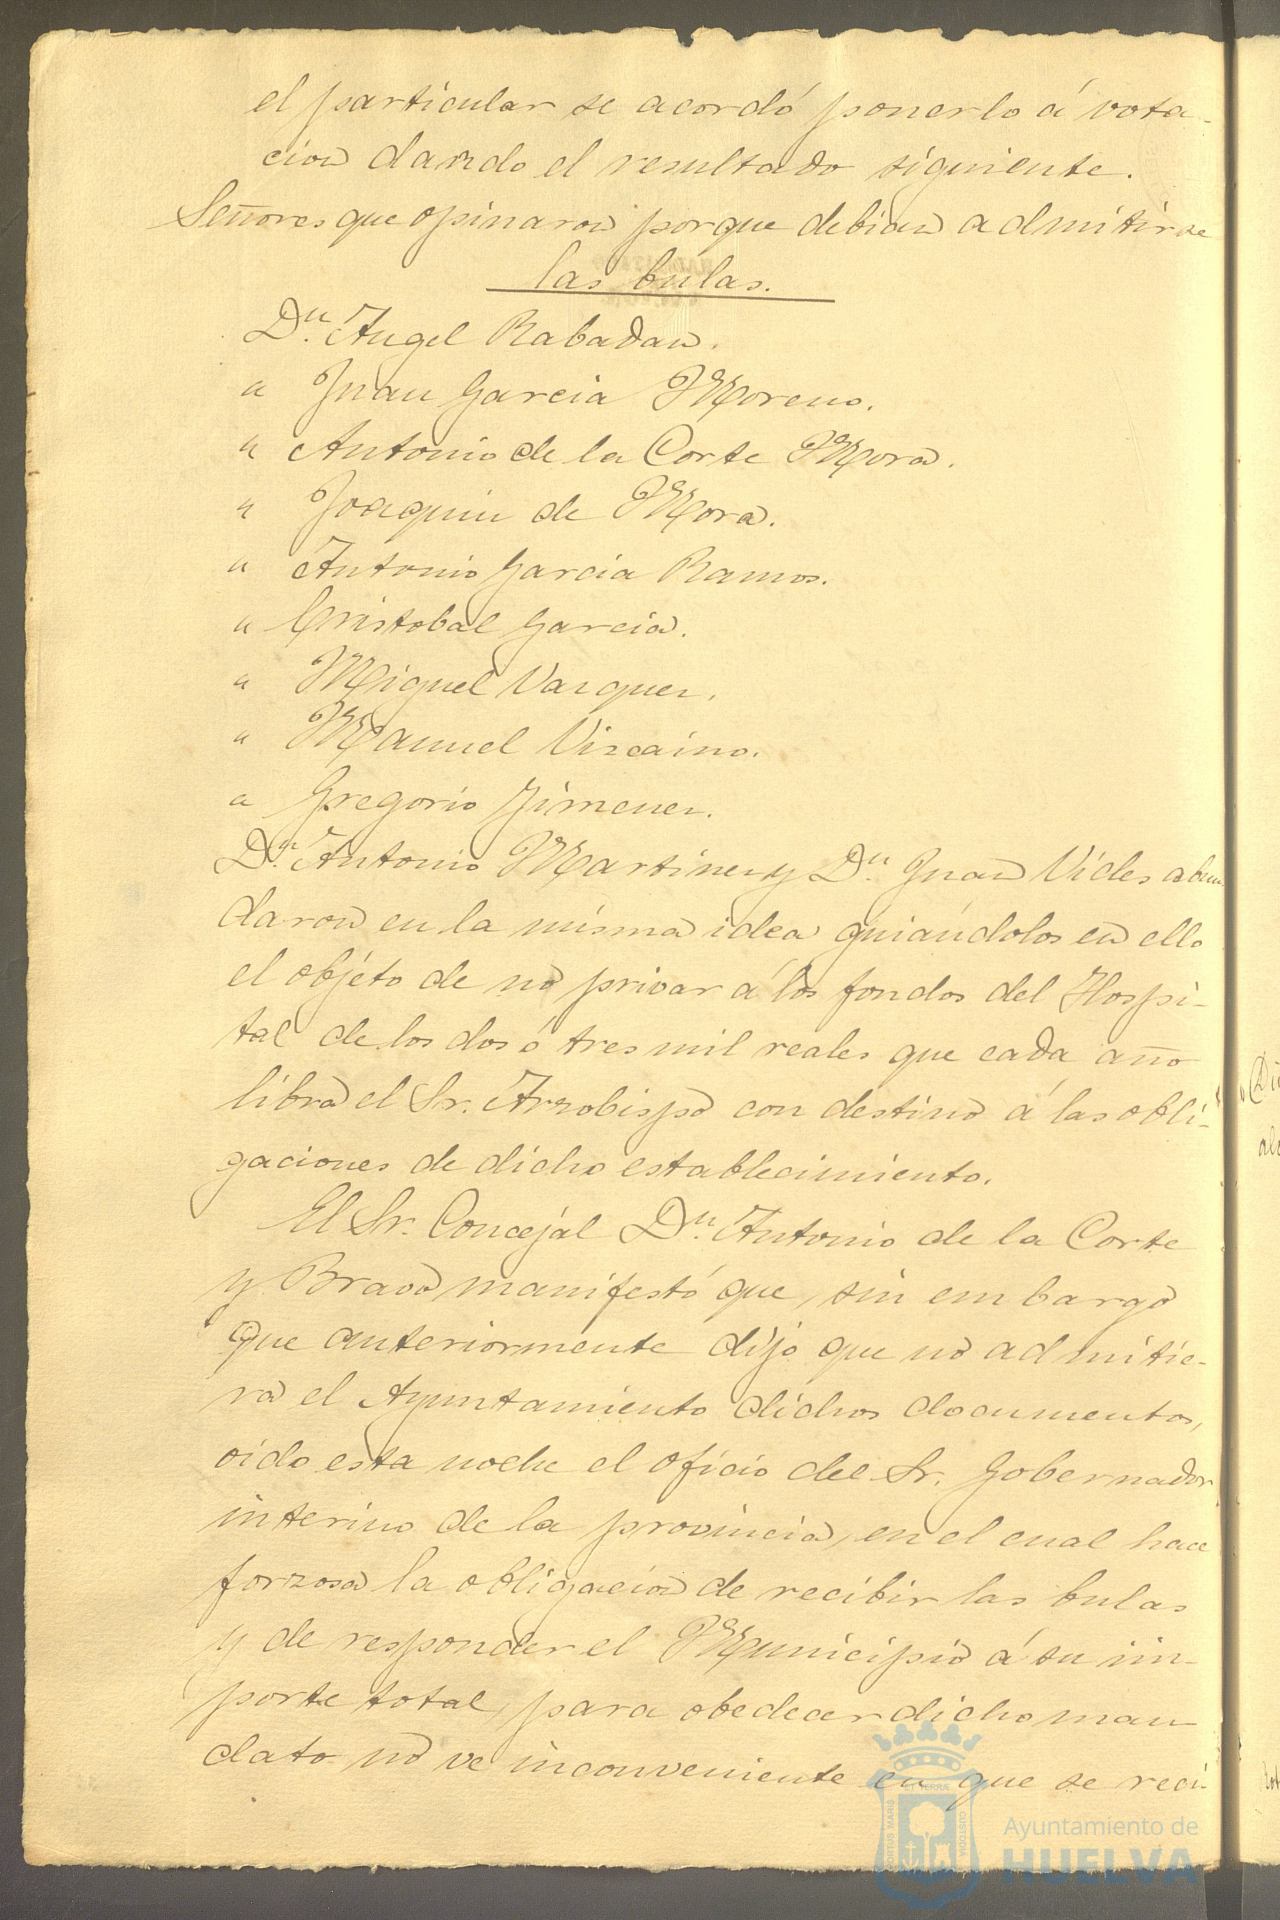 el particular se acordó ponerlo á vota-
cion dando el resultado siguiente.
Señores que opinaron porque debian admitirse
las bulas.
Dn. Angel Rabadan.
" Juan Garcia Moreno.
" Antonio de la Corte Mora.
" Joaquin de Mora.
" Antonio Garcia Ramos.
" Cristobal Garcia.
" Miguel Vazquez.
" Manuel Vizcaino.
" Gregorio Jimenez.
Dn. Antonio Martinez y Dn. Juan Vides abun
daron en la misma idea guiándolos en ello
el objéto de no privar á los fondos del Hospi-
tal de los dos ó tres mil reales que cada año
libra el Sr. Arzobispo con destino á las obli-
gaciones de dicho establecimiento.
El Sr. Concejal Dn. Antonio de la Corte
y Bravo manifestó que, sin embargo
que anteriormente dijo que no admitie-
ra el Ayuntamiento dichos documentos,
oido esta noche el oficio del Sr. Gobernador
interino de la provincia, en el cual hace
forzosa la obligacion de recibir las bulas
y de responder el Municipio á su im-
porte total, para obedecer dicho man
dato no ve inconveniente en que se reci-
Ayuntamiento de
HUELVA